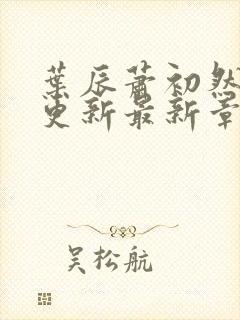 葉辰蕭初然
更新最新章
吴松航